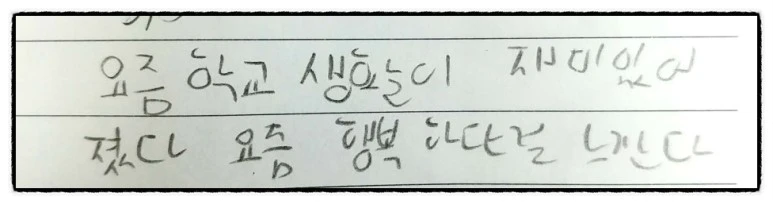 요즘 학교 생활이 재미있어
졌다 요즘 행복 하단걸 느낀다